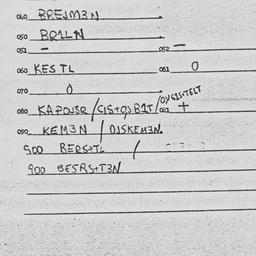 040 BREJM3N
050 BR1LN
051 – 052 –
060 KESTL 061 0
070 0
080 KAPOUSR /CIS+O)B1T/O)CIS+TELT 063 +
090 KEM3N / DISKEM3N.
500 BERS+TL /
900 BESRS+T3N